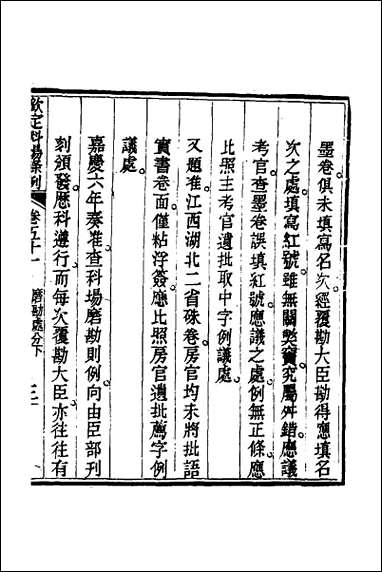 墨卷俱未填寫名次經覆勘大臣勘得應填名
次之處填寫紅號雖無關弊竇究屬舛錯應議
考官查墨卷誤填紅號應議之處例無正條應
比照主考官遺批取中字例議處
又題准江西湖北二省硃卷房官均未將批語
實書卷面僅粘浮簽應比照房官遺批薦字例
議處
嘉慶六年奏准查科場磨勘則例向由臣部刊
刻頒發歷科遵行而每次覆勘大臣亦往往有
欽定科場條例 卷五十一 磨勘處分下